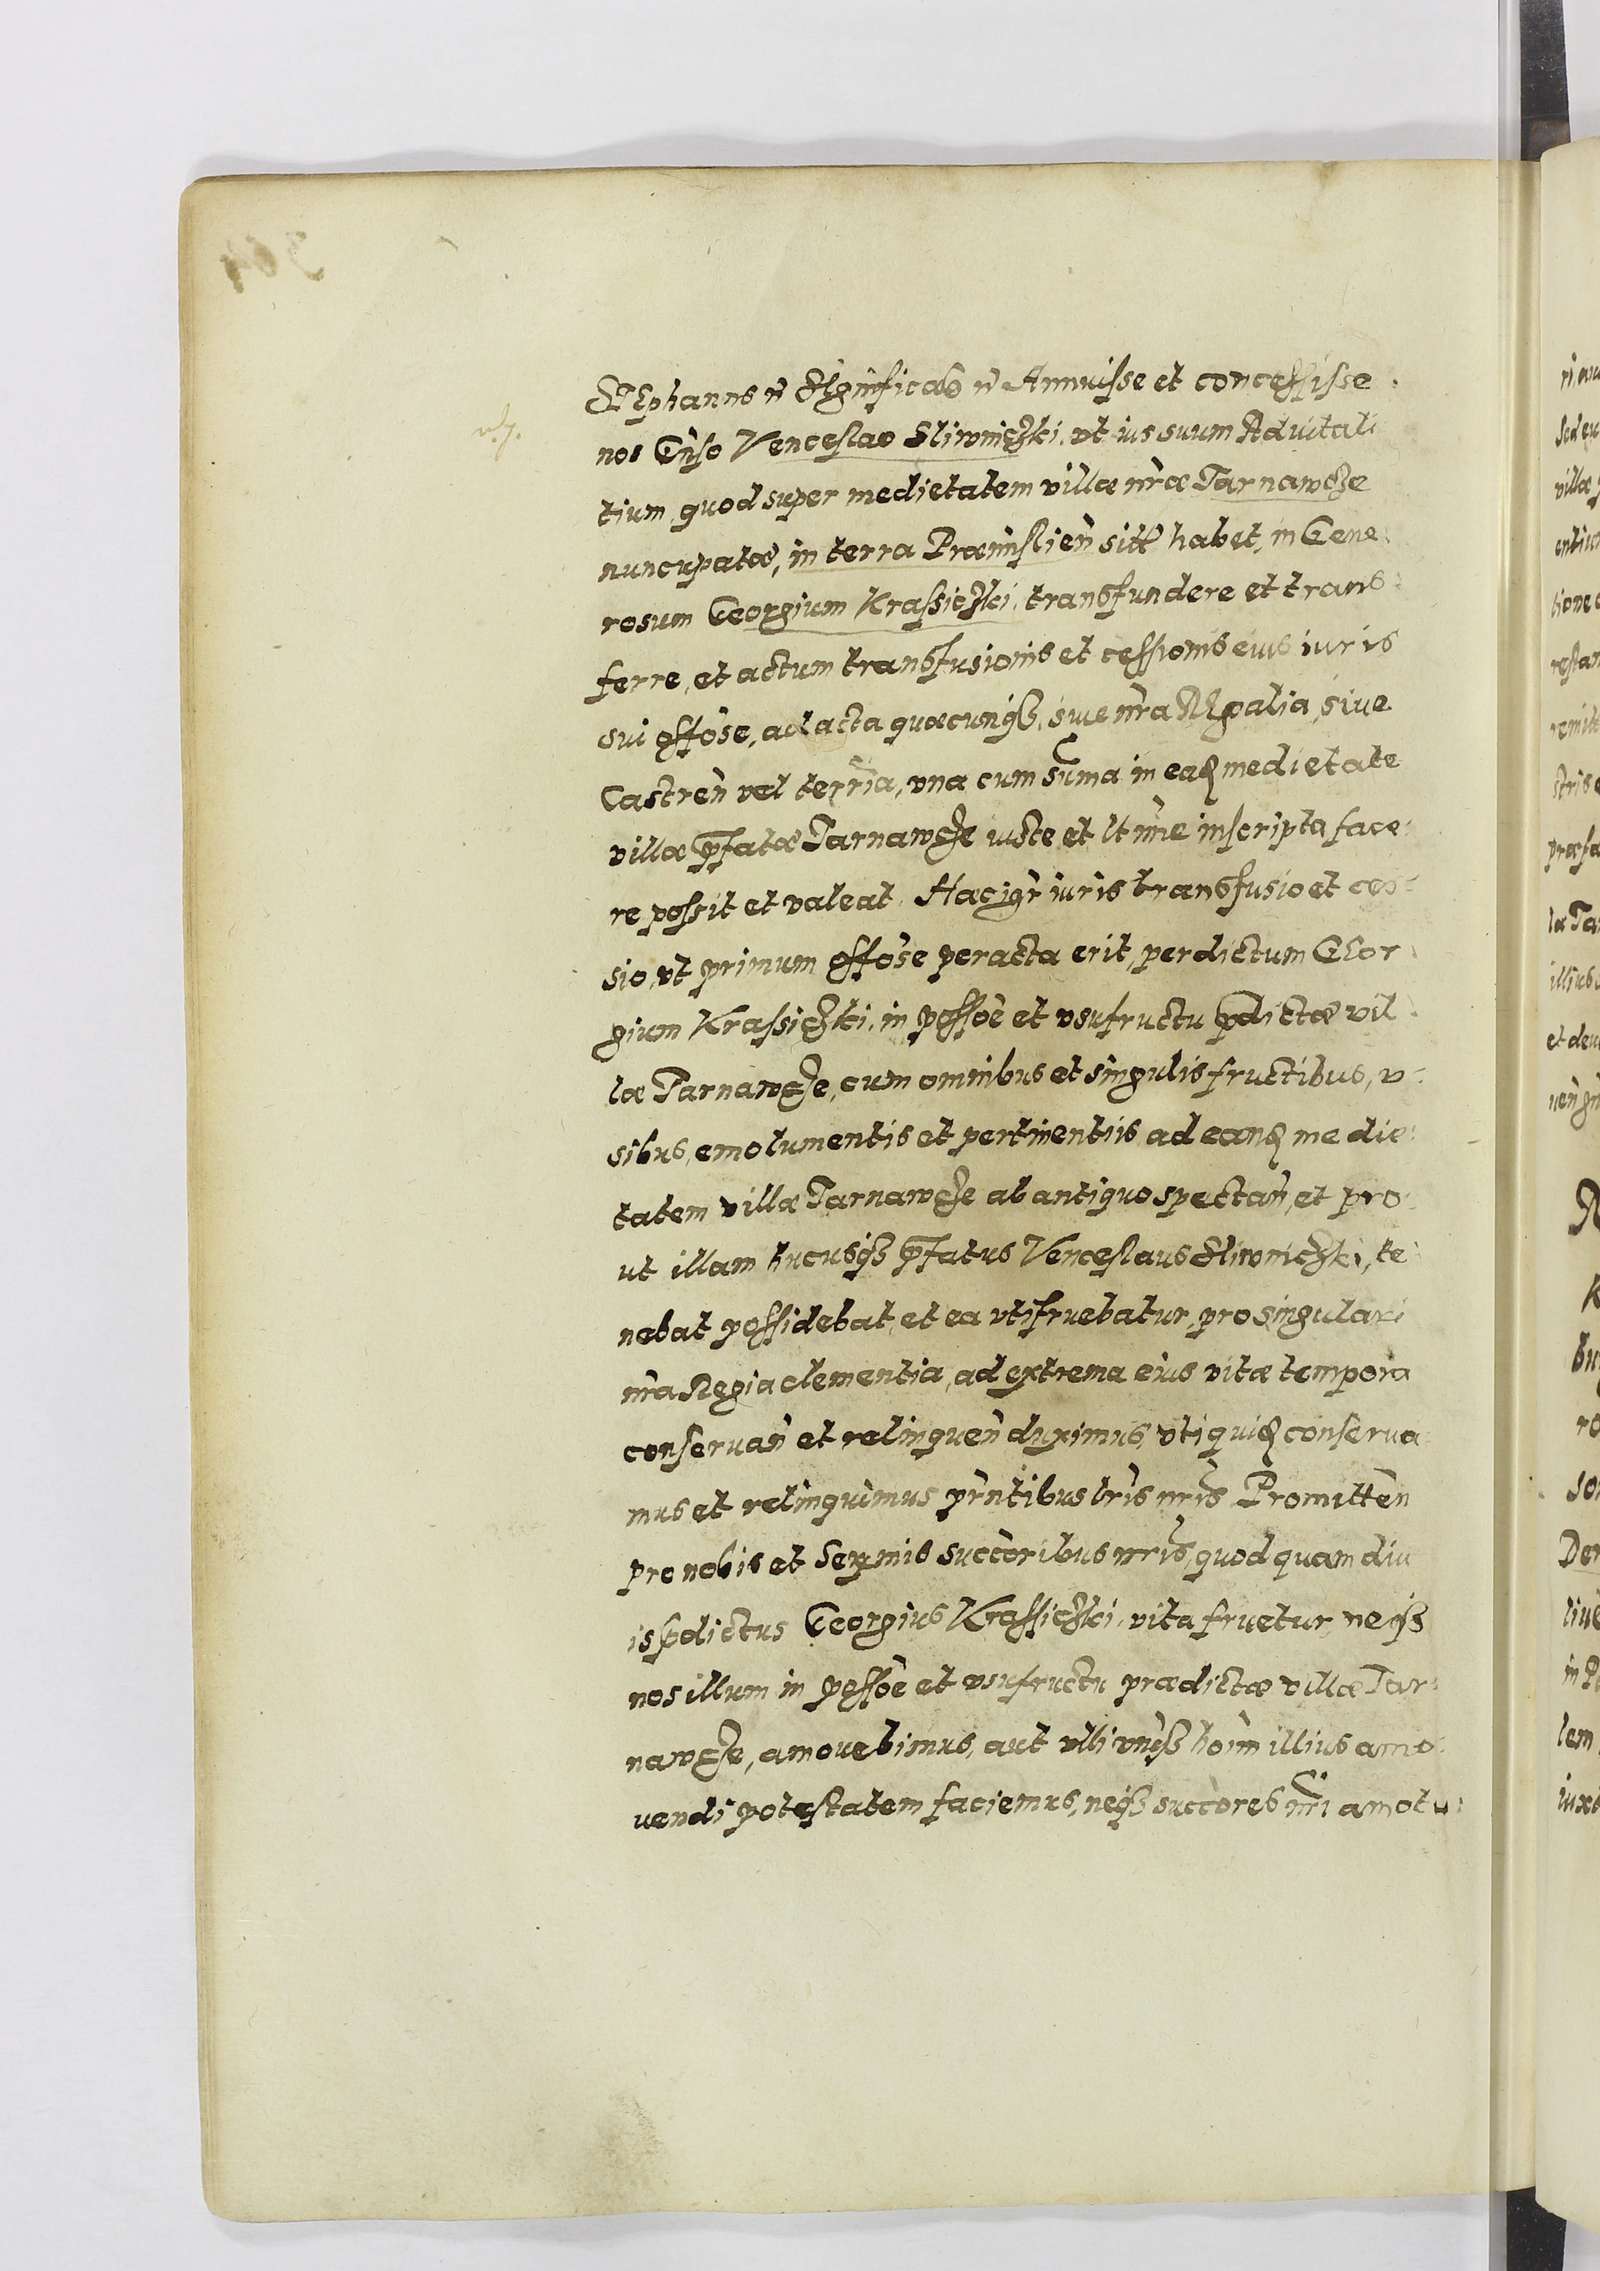 STEphanus etc̃ Significab etc̃ Annuisse et concessisse
nos Gn̄so Venceslao Sliwniczki, vt ius suum Aduitali
tium, quod super medietatem villæ nr̄æ Tarnawcze
nuncupatæ, in terra Præmislien̄ sitæ habet, in Gene
rosum Georgium Krassiczki, transfundere et trans
ferre, et actum transfusionis et cessionis eius iuris
sui effōse, ad acta quæcunq₃, siue nr̄a REgalia, siue
Castren̄ vel terrr̄ia, vna cum sum̄a in eadē medietate
villæ p̄fatæ Tarnawcze iuste et ltīme inscripta face
re possit et valeat. Hac igr̄ iuris transfusio et ces
sio, vt primum effōse peracta erit, per dictum GEor
gium Krassiczki, in possōe et vsufructu p̄dictæ vil
læ Tarnawcze, cum omnibus et singulis fructibus, v
sibus, emolumentis et pertinentiis ad eandē medie
tatem villæ Tarnawcze ab antiquo spectan̄, et pro
ut illam hucusq₃ p̄fatus Venceslaus Sliwniczki, te
nebat possidebat, et ea vtifruebatur, pro singulari
nr̄a Regia clementia, ad extrema eius vitæ tempora
conseruan̄ et relinquen̄ duximus, vti quidē conserua
mus et relinquimus pr̄ntibus lrīs nrīs. Promitten̄
pro nobis et Sermis succōribus nrīs, quod quam diu
is p̄dictus Georgius Krassiczki, vita fruetur, neq₃
nos illum in possōe et vsufructu prædictæ villæ Tar
nawcze, amouebimus, aut vlli vnq₃ hoīm illius amo
uendi potestatem faciemus, neq₃ succōres nrī amotu